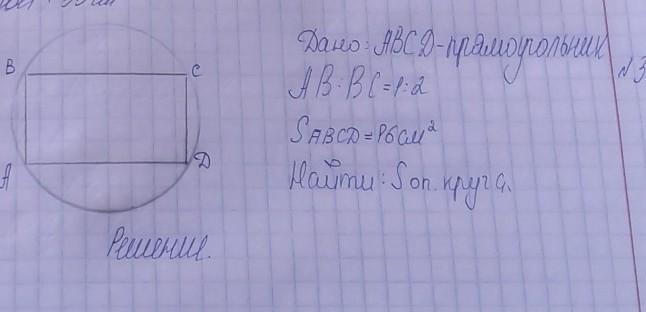 Дано: ABCD-прямоугольник
№3
AB:BC=1:2
SABCD=16см²
Найти: S оп. круга.
B
C
A
D
Решение.